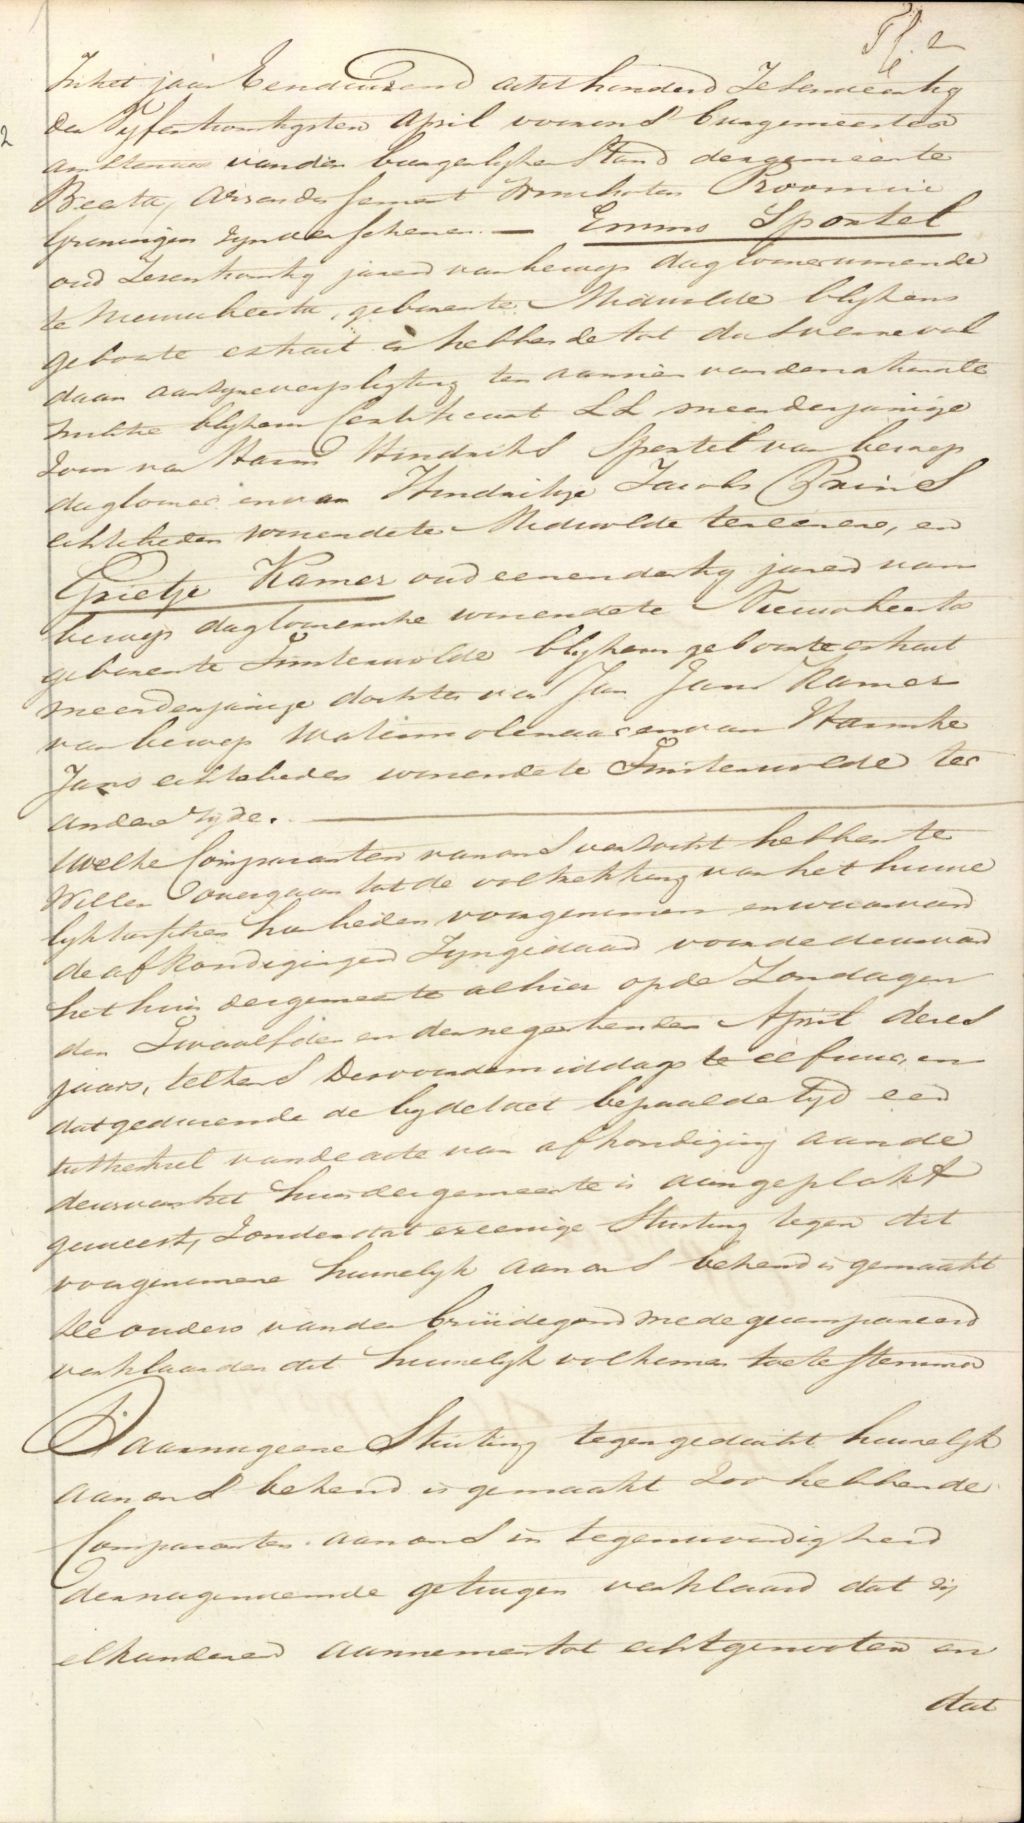 f. 2
2
In het jaar Eenduizend acht honderd Zesendertig
den Vyfentwintigsten April voor ons burgemeester
ambtenaar van den burgerlyken Stand der gemeente
Beerta, Arrondissement Winschoten Provincie
Groningen zyn verschenen — Emmo Sportel
oud Zesentwintig jaren van beroep daglooner wonende
te Nieuwbeerta, geboren te Midwolde blykens
geboorte extract en hebbende tot dusverre vol
daan aan zyne verpligting ten aanzien van de nationale
militie blykens Certificaat LL meerderjarige
Zoon van Harm Hindriks Sportel van beroep
daglooner en van Hindrikje Jacobs Prins
echtelieden wonende te Midwolde ter eenere, en
Grietje Kamer oud eenendertig jaren van
beroep dagloonerske wonende te Nieuwbeerta
geboren te Finsterwolde blykens geboorte extract
meerderjarige dochter van Jan Jans Kamer
van beroep watermolenaar en van Harmke
Jans echtelieden wonende te Finsterwolde ter
andere zyde. —
Welke Comparanten van ons verzocht hebben te
Willen overgaan tot de voltrekking van het huwe
lyk tusschen hun heden voorgenomen en waarvan
de afkondigingen zyn gedaan voor de deur van
het huis der gemeente alhier op de Zondagen
den Twaalfden en den negentienden April dezes
jaars, telkens des voordemiddags te elf uure, en
dat gedurende de by de wet bepaalde tyd een
uittreksel van de acte van afkondiging aan de
deur van het huis der gemeente is aangeplakt
geweest, Zonder dat er eenige Stuiting tegen dit
voorgenomene huwelyk aan ons bekend is gemaakt
De ouders van den bruidegom mede gecompareerd
verklaarden dit huwelyk volkomen toe te stemmen
Daar nu geene Stuiting tegen gedacht huwelyk
aan ons bekend is gemaakt Zoo hebben de
Comparanten aan ons in tegenwoordigheid
der nagenoemde getuigen verklaard dat zy
elkanderen aannemen tot echtgenooten en
dat